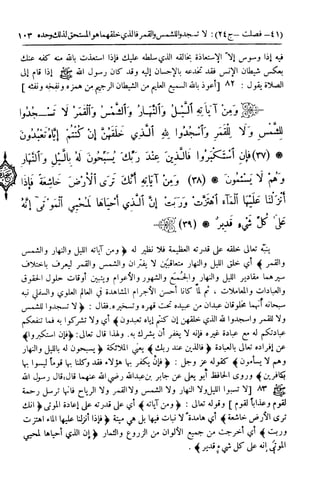 (٤١- فصلت -ج٢٤) : لا تسجدوا للشمس والقمر فالذي خلقهما هو المستحق لذلك وحده ١٠٣
فيه إذا وسوس إلا الاستعاذة بخالقه الذي سلطه عليك فإذا استعذت بالله منه كفه عنك
بعكس شيطان الإنس فقد تخدعه بالإحسان إليه وقد كان رسول الله ﷺ إذا قام إلى
الصلاة يقول : ٨٢ [أعوذ بالله السميع العليم من الشيطان الرجيم من همزه ونفخه ونفثه]
وَمِنْ آيَاتِهِ اللَّيْلُ وَالنَّهَارُ وَالشَّمْسُ وَالْقَمَرُ لَا تَسْجُدُوا
لِلشَّمْسِ وَلَا لِلْقَمَرِ وَاسْجُدُوا لِلَّهِ الَّذِي خَلَقَهُنَّ إِن كُنتُمْ إِيَّاهُ تَعْبُدُونَ
* (٣٧) فَإِنِ اسْتَكْبَرُوا فَالَّذِينَ عِندَ رَبِّكَ يُسَبِّحُونَ لَهُ بِاللَّيْلِ وَالنَّهَارِ
وَهُمْ لَا يَسْأَمُونَ * (٣٨) وَمِنْ آيَاتِهِ أَنَّكَ تَرَى الْأَرْضَ خَاشِعَةً فَإِذَا
أَنزَلْنَا عَلَيْهَا الْمَاءَ اهْتَزَّتْ وَرَبَتْ إِنَّ الَّذِي أَحْيَاهَا لَمُحْيِي الْمَوْتَى إِنَّهُ
عَلَى كُلِّ شَيْءٍ قَدِيرٌ * (٣٩)
ينبّه تعالى خلقه على قدرته العظيمة فلا نظير له ﴿ ومن آياته الليل والنهار والشمس
والقمر ﴾ أي خلق الليل والنهار متعاقبين لا يفتران والشمس والقمر ليعرف باختلاف
سيرهما مقادير الليل والنهار والجمع والشهور والأعوام ويتبين أوقات حلول الحقوق
والعبادات والمعاملات ، ثم لما كانا أحسن الأجرام المشاهدة في العالم العلوي والسفلي نبه
سبحانه أنهما مخلوقان عبدان من عبيده تحت قهره وتسخيره. فقال : ﴿ لا تسجدوا للشمس
ولا للقمر واسجدوا لله الذي خلقهن إن كنتم إياه تعبدون ﴾ أي ولا تشركوا به فما تنفعكم
عبادتكم له مع عبادة غيره فإنه لا يغفر أن يشرك به. ولهذا قال تعالى: ﴿ فإن استكبروا ﴾
عن إفراده تعالى بالعبادة ﴿ فالذين عند ربك ﴾ يعني الملائكة ﴿ يسبحون له بالليل والنهار
وهم لا يسأمون ﴾ كقوله عز وجل : ﴿ فإن يكفر بها هؤلاء فقد وكلنا بها قوماً ليسوا بها
بكافرين ﴾ وروى الحافظ أبو يعلى عن جابر بن عبدالله رضي الله عنهما قال، قال رسول الله
ﷺ ٨٣ [لا تسبوا الليل ولا النهار ولا الشمس ولا القمر ولا الرياح فإنها ترسل رحمة
لقوم وعذاباً لقوم] وقوله تعالى : ﴿ ومن آياته ﴾ أي على قدرته على إعادة الموتى ﴿ أنك
ترى الأرض خاشعة ﴾ أي هامدة لا نبات فيها بل هي ميتة ﴿ فإذا أنزلنا عليها الماء اهتزت
وربت ﴾ أي أخرجت من جميع الألوان من الزروع والثمار ﴿ إن الذي أحياها لمحيي
الموتى إنه على كل شيء قدير ﴾ .